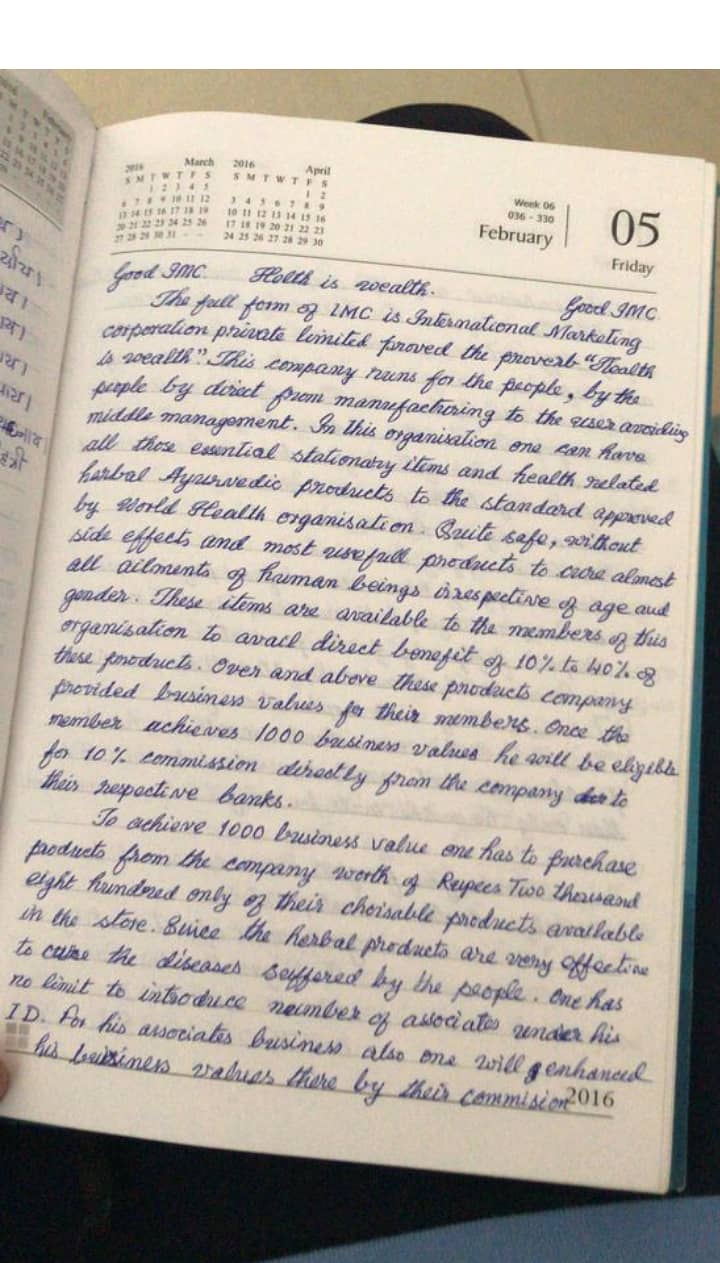 2016 March 2016 April
S M T W T F S S M T W T F S
1 2 3 4 5 1 2
6 7 8 9 10 11 12 3 4 5 6 7 8 9
13 14 15 16 17 18 19 10 11 12 13 14 15 16
20 21 22 23 24 25 26 17 18 19 20 21 22 23
27 28 29 30 31 - - 24 25 26 27 28 29 30
Week 06
036 - 330
February
05
Friday
Good IMC. Helth is wealth. Good IMC
The full form of IMC is International Marketing
corporation private limited proved the proverb "Health
is wealth". This company runs for the people, by the
people by direct from manufacturing to the user avoiding
middle management. In this organisation one can have
all those essential stationary items and health related
herbal Ayurvedic products to the standard approved
by World Health organisation. Quite safe, without
side effects and most usefull products to cure almost
all ailments of human beings irrespective of age and
gender. These items are available to the members of this
organisation to avail direct benefit of 10% to 40% of
these products. Over and above these products company
provided business values for their members. Once the
member achieves 1000 business values he will be eligible
for 10% commission directly from the company to
their respective banks.
To achieve 1000 business value one has to purchase
products from the company worth of Rupees Two thousand
eight hundred only of their choisable products available
in the store. Since the herbal products are very effective
to cure the diseases suffered by the people. One has
no limit to introduce number of associates under his
ID. For his associates business also one will enhanced
his business values there by their commision
2016